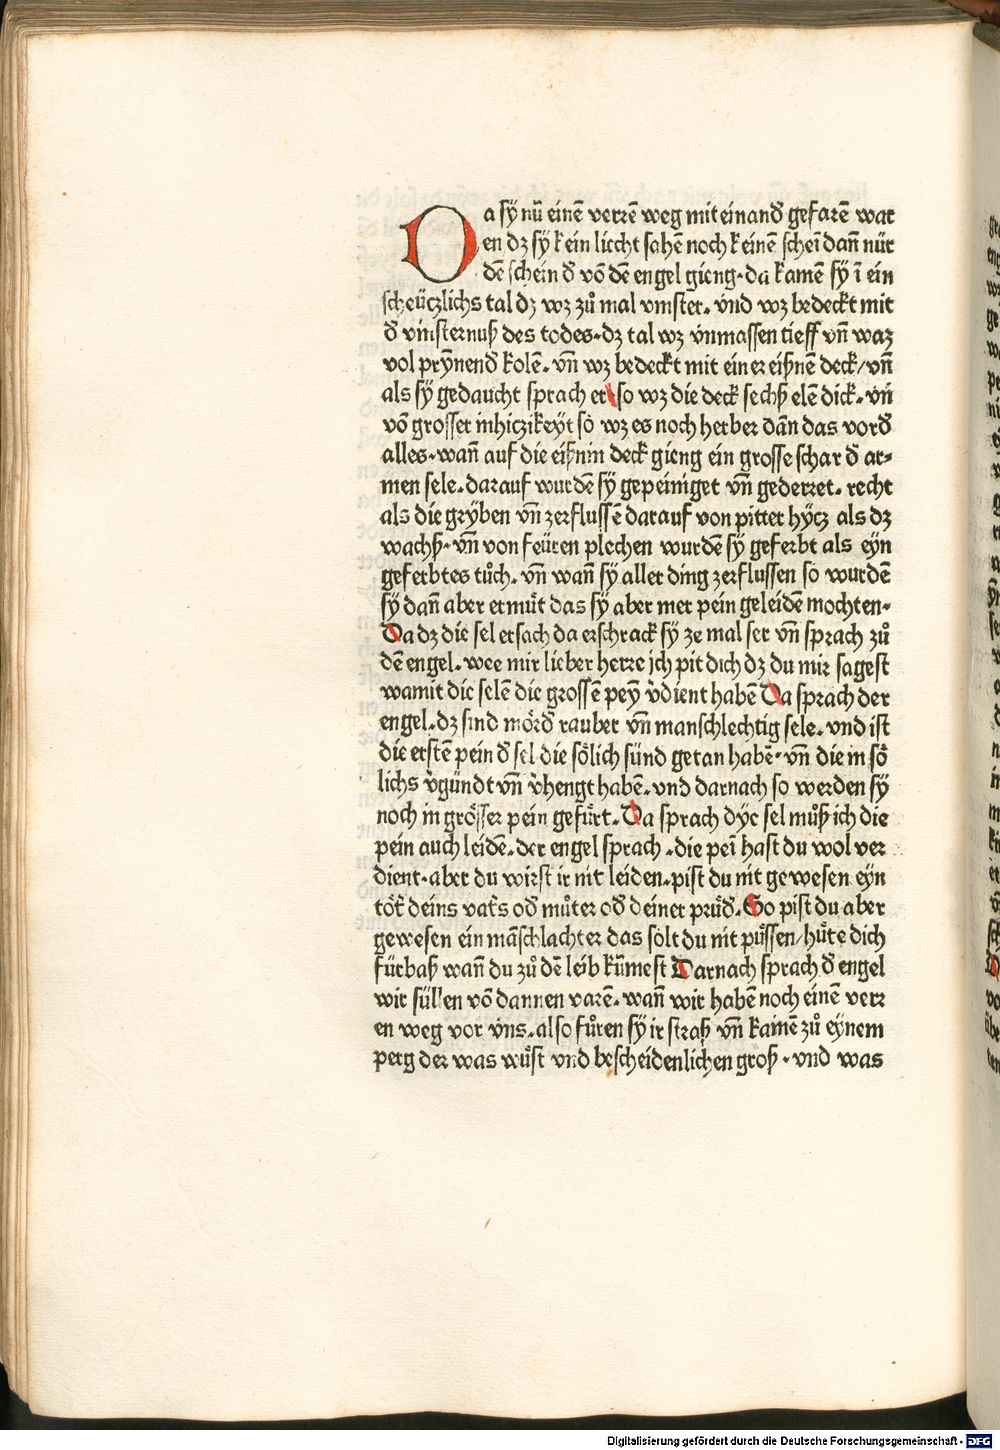 Da sÿ nū einē verrē weg miteinand̄ gefarē war
en dꝫ sÿ kein liecht sahē noch keinē scheī dan̄ nür
dē schein d̄ vō dē engel gieng·da kamē sÿ ī ein
scheüczlichs tal dꝫ wꝫ zů mal vinster. vnd wꝫ bedeckt mit
d̄ vinsternuß des todes·dꝫ tal wꝫ vnmassen tieff vn̄ waꝫ
vol prÿnend̄ kolē. vn̄ wꝫ bedeckt mit einer eißnē deck/vn̄
als sÿ gedaucht sprach er so wꝫ die deck sechß elē dick. vn̄
vō grosser inhiczikeÿt so wꝫ es noch herber dān das vord̄
alles·wan̄ auf die eißnin deck gieng ein grosse schar d̄ ar⸗
men sele.darauf wurdē sÿ gepeiniget vn̄ gederret. recht
als die grÿben vn̄ zerflussē darauf von pitter hÿcz als dꝫ
wachß·vn̄ von feüren plechen wurdē sÿ geferbt als eÿn
geferbtes tůch. vn̄ wan̄ sÿ aller ding zerflussen so wurdē
sÿ dan̄ aber ermüt das sÿ aber mer pein geleidē mochten·
Da dꝫ die sel ersach da erschrack sÿ ze mal ser vn̄ sprach zů
dē engel.wee mir lieber herre ich pit dich dꝫ du mir sagest
wamit die selē die grossē peÿ v̄dient habē Da sprach der
engel.dꝫ sind mörd̄ rauber vn̄ manschlechtig sele. vnd ist
die erstē pein d̄ sel die sölich sünd getan habē·vn̄ die in sö
lichs v̄gündt vn̄ v̄hengt habē.vnd darnach so werden sÿ
noch in grösser pein gefürt. Da sprach dÿe sel můß ich die
pein auch leidē.der engel sprach.die peī hast du wol ver
dient·aber du wirst ir nit leiden.pist du nit gewesen eÿn
töt̄ deins vat̄s od̄ můter od̄ deiner prüd̄. So pist du aber
gewesen ein māschlachter das solt du nit püssen/hüte dich
fürbaß wan̄ du zů dē leib kūmest Darnach sprach d̄ engel
wir süllen vō dannen varē. wan̄ wir habē noch einē verr
en weg vor vns.also fůren sÿ ir straß vn̄ kamē zů eÿnem
perg der was wüst vnd bescheidenlichen groß·vnd was
Digitalisierung gefördert durch die Deutsche Forschungsgemeinschaft - DFG